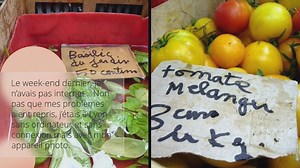 Basilic
du jardin
50 centim
Le week-end dernier je
n'avais pas internet. Non
pas que mes problèmes
aient repris, j'étais à Lyon
sans ordinateur et sans
connexion mais avec mon
appareil photo.
tomate
Melangu
3
le Kg.